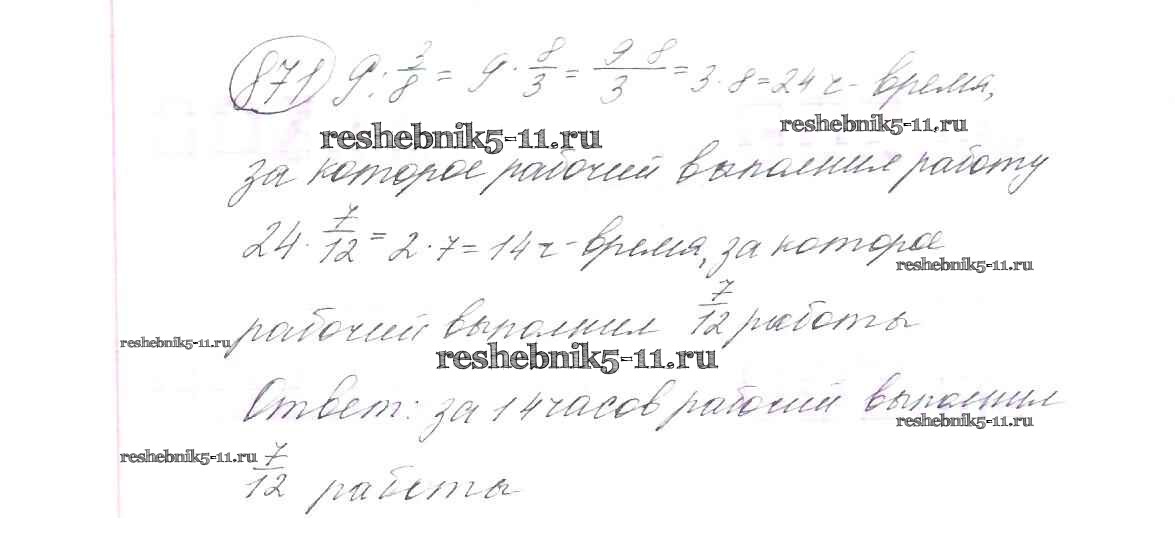 871 9 : 3/8 = 9 · 8/3 = 9 8/3 = 3 · 8 = 24 ч - время,
reshebnik5-11.ru
reshebnik5-11.ru
за которое рабочий выполнил работу
24 · 7/12 = 2 · 7 = 14 ч - время, за которое
reshebnik5-11.ru
рабочий выполнил 7/12 работы
reshebnik5-11.ru
reshebnik5-11.ru
Ответ: за 14 часов рабочий выполнил
reshebnik5-11.ru
reshebnik5-11.ru
7/12 работы